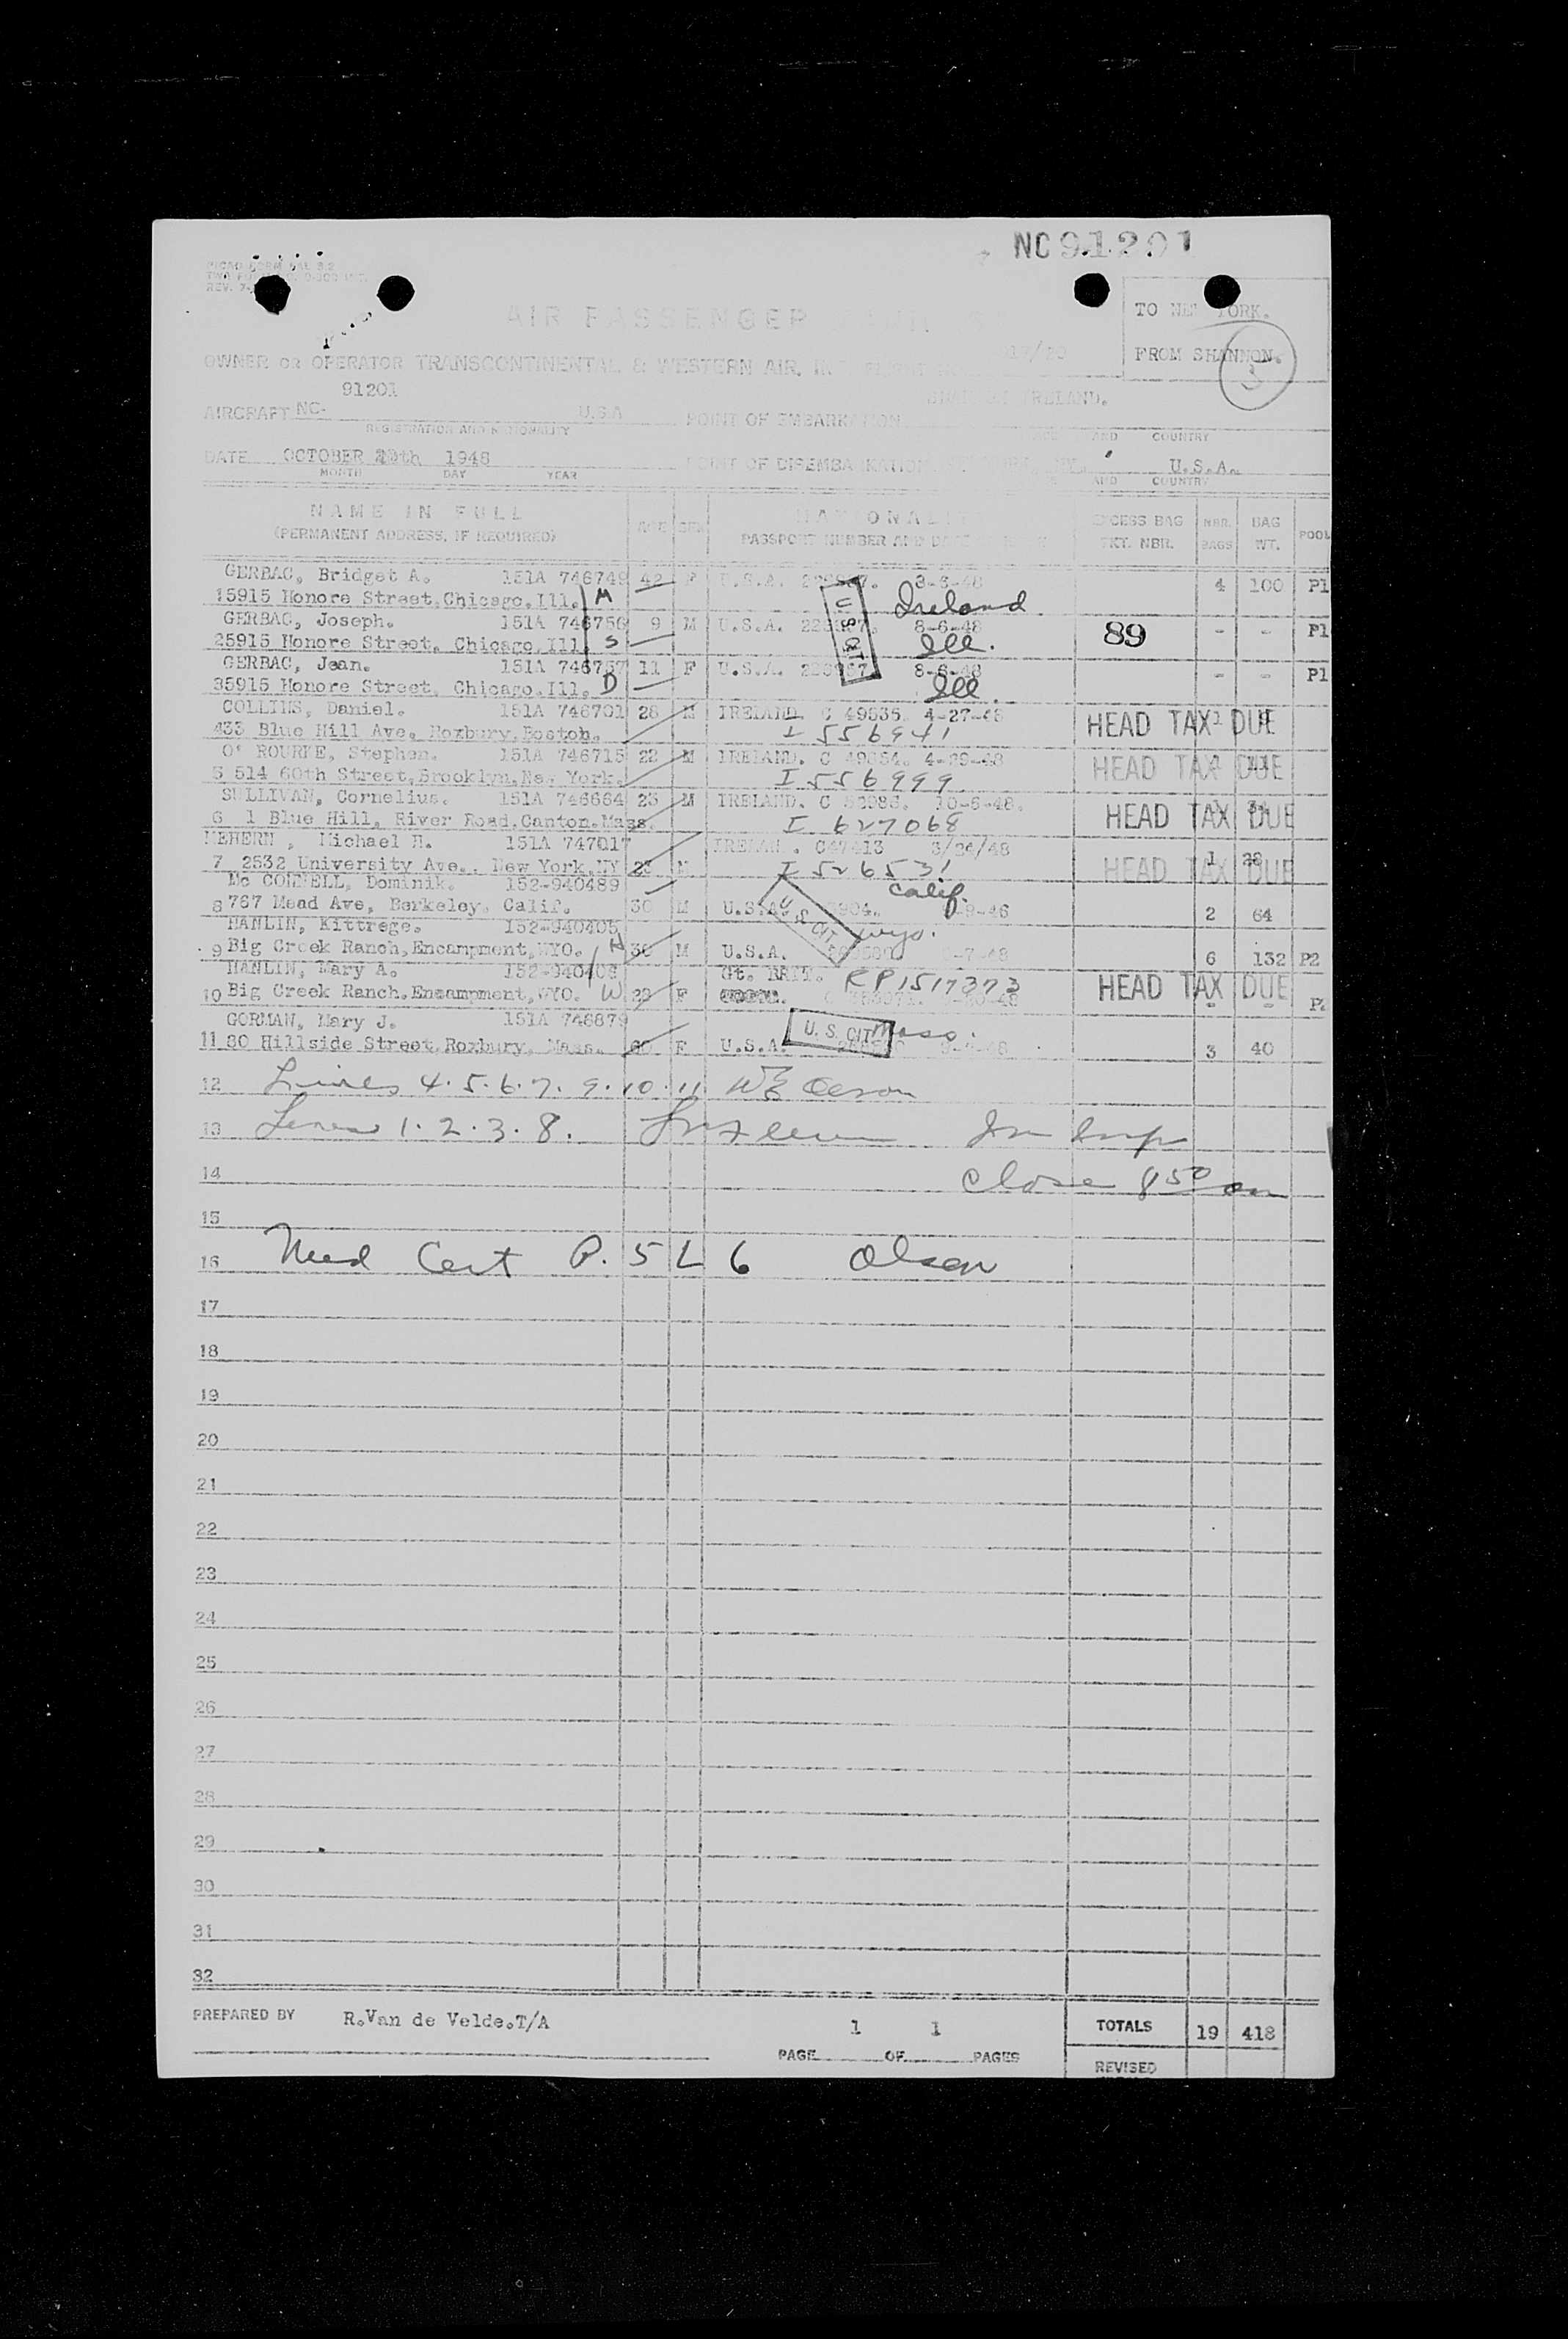 NC 91201
REV. 7-
AIR PASSENGER
TO NEW YORK.
FROM SHANNON.
3
OWNER OR OPERATOR TRANSCONTINENTAL & WESTERN AIR, INC.
91201
IRELAND.
AIRCRAFT NC- U.S.A POINT OF EMBARKATION
REGISTRATION AND NATIONALITY AND COUNTRY
DATE OCTOBER 20th 1948 POINT OF DISEMBARKATION U.S.A.
MONTH DAY YEAR AND COUNTRY
NAME IN FULL (PERMANENT ADDRESS, IF REQUIRED) AGE SEX NATIONALITY PASSPORT NUMBER AND EXCESS BAG TKT. NBR. NBR. BAGS BAG WT. POOL
GERBAC, Bridget A. 151A 746749 42 F U.S.A. 8-6-48 4 100 P1
15915 Honore Street, Chicago, Ill. M Ireland
GERBAC, Joseph. 151A 746756 9 M U.S.A. 8-6-48 89 - - P1
25915 Honore Street, Chicago, Ill. S U S CIT Ill.
GERBAC, Jean. 151A 746757 11 F U.S.A. 8-6-48 - - P1
35915 Honore Street, Chicago, Ill. D Ill
COLLINS, Daniel. 151A 746701 28 M IRELAND. C 49535. 4-27-48 HEAD TAX DUE
433 Blue Hill Ave. Roxbury, Boston. I 556941
O' ROURKE, Stephen. 151A 746715 22 M IRELAND. C 4-29-48 HEAD TAX DUE
5 514 60th Street, Brooklyn, New York. I 556999
SULLIVAN, Cornelius. 151A 746664 23 M IRELAND. C 10-6-48. HEAD TAX DUE
6 1 Blue Hill, River Road, Canton, Mass. I 627068
MEHERN, Michael H. 151A 747017 IRELAND. C47413 3/24/48 1 28
7 2532 University Ave., New York, NY M I 526531 HEAD TAX DUE
Mc CONNELL, Dominik. 152-940489 Calif.
8 767 Mead Ave, Berkeley, Calif. 30 M U.S.A. U S CIT 2 64
HANLIN, Kittrege. 152-940405 Wyo.
9 Big Creek Ranch, Encampment, WYO. H 30 M U.S.A. 6 132 P2
HANLIN, Mary A. Gt. BRIT. RP1517373
10 Big Creek Ranch, Encampment, WYO. W F HEAD TAX DUE - -
GORMAN, Mary J. 151A 746879 U. S. CIT Mass.
11 80 Hillside Street, Roxbury, Mass. 60 F U.S.A. 3 40
12 Lines 4. 5. 6. 7. 9. 10. 11
13 Lines 1. 2. 3. 8. Im Insp
14 Close 8 50 am
15
16 Med Cert P. 5 L 6 Olsen
17
18
19
20
21
22
23
24
25
26
27
28
29
30
31
32
PREPARED BY R. Van de Velde. T/A TOTALS 19 418
PAGE 1 OF 1 PAGES REVISED